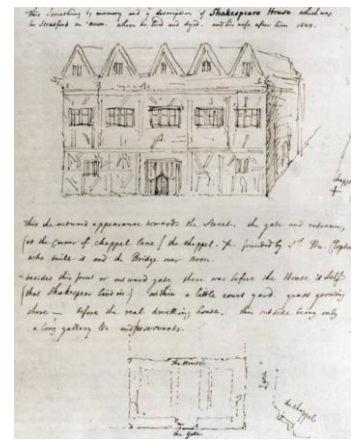 This Something by memory and ye description of Shakespears House which was
in Stratford on avon. where he livd and dyed. and his wife after him 1623.
chappel
X
this the outward appearance towards the Street. the gate and entrance,
(at the Corner of chappel lane / the chappel. X. founded by Sr. Hu. Clopton
who built it and the Bridge over avon.
besides this front or outward gate there was before the House itself
(that Shakespear livd in.) within a little court yard. grass growing
there — before the real dwelling house. this outside being only
a long gallery &c and for servants.
The House
the Gate
the chappel